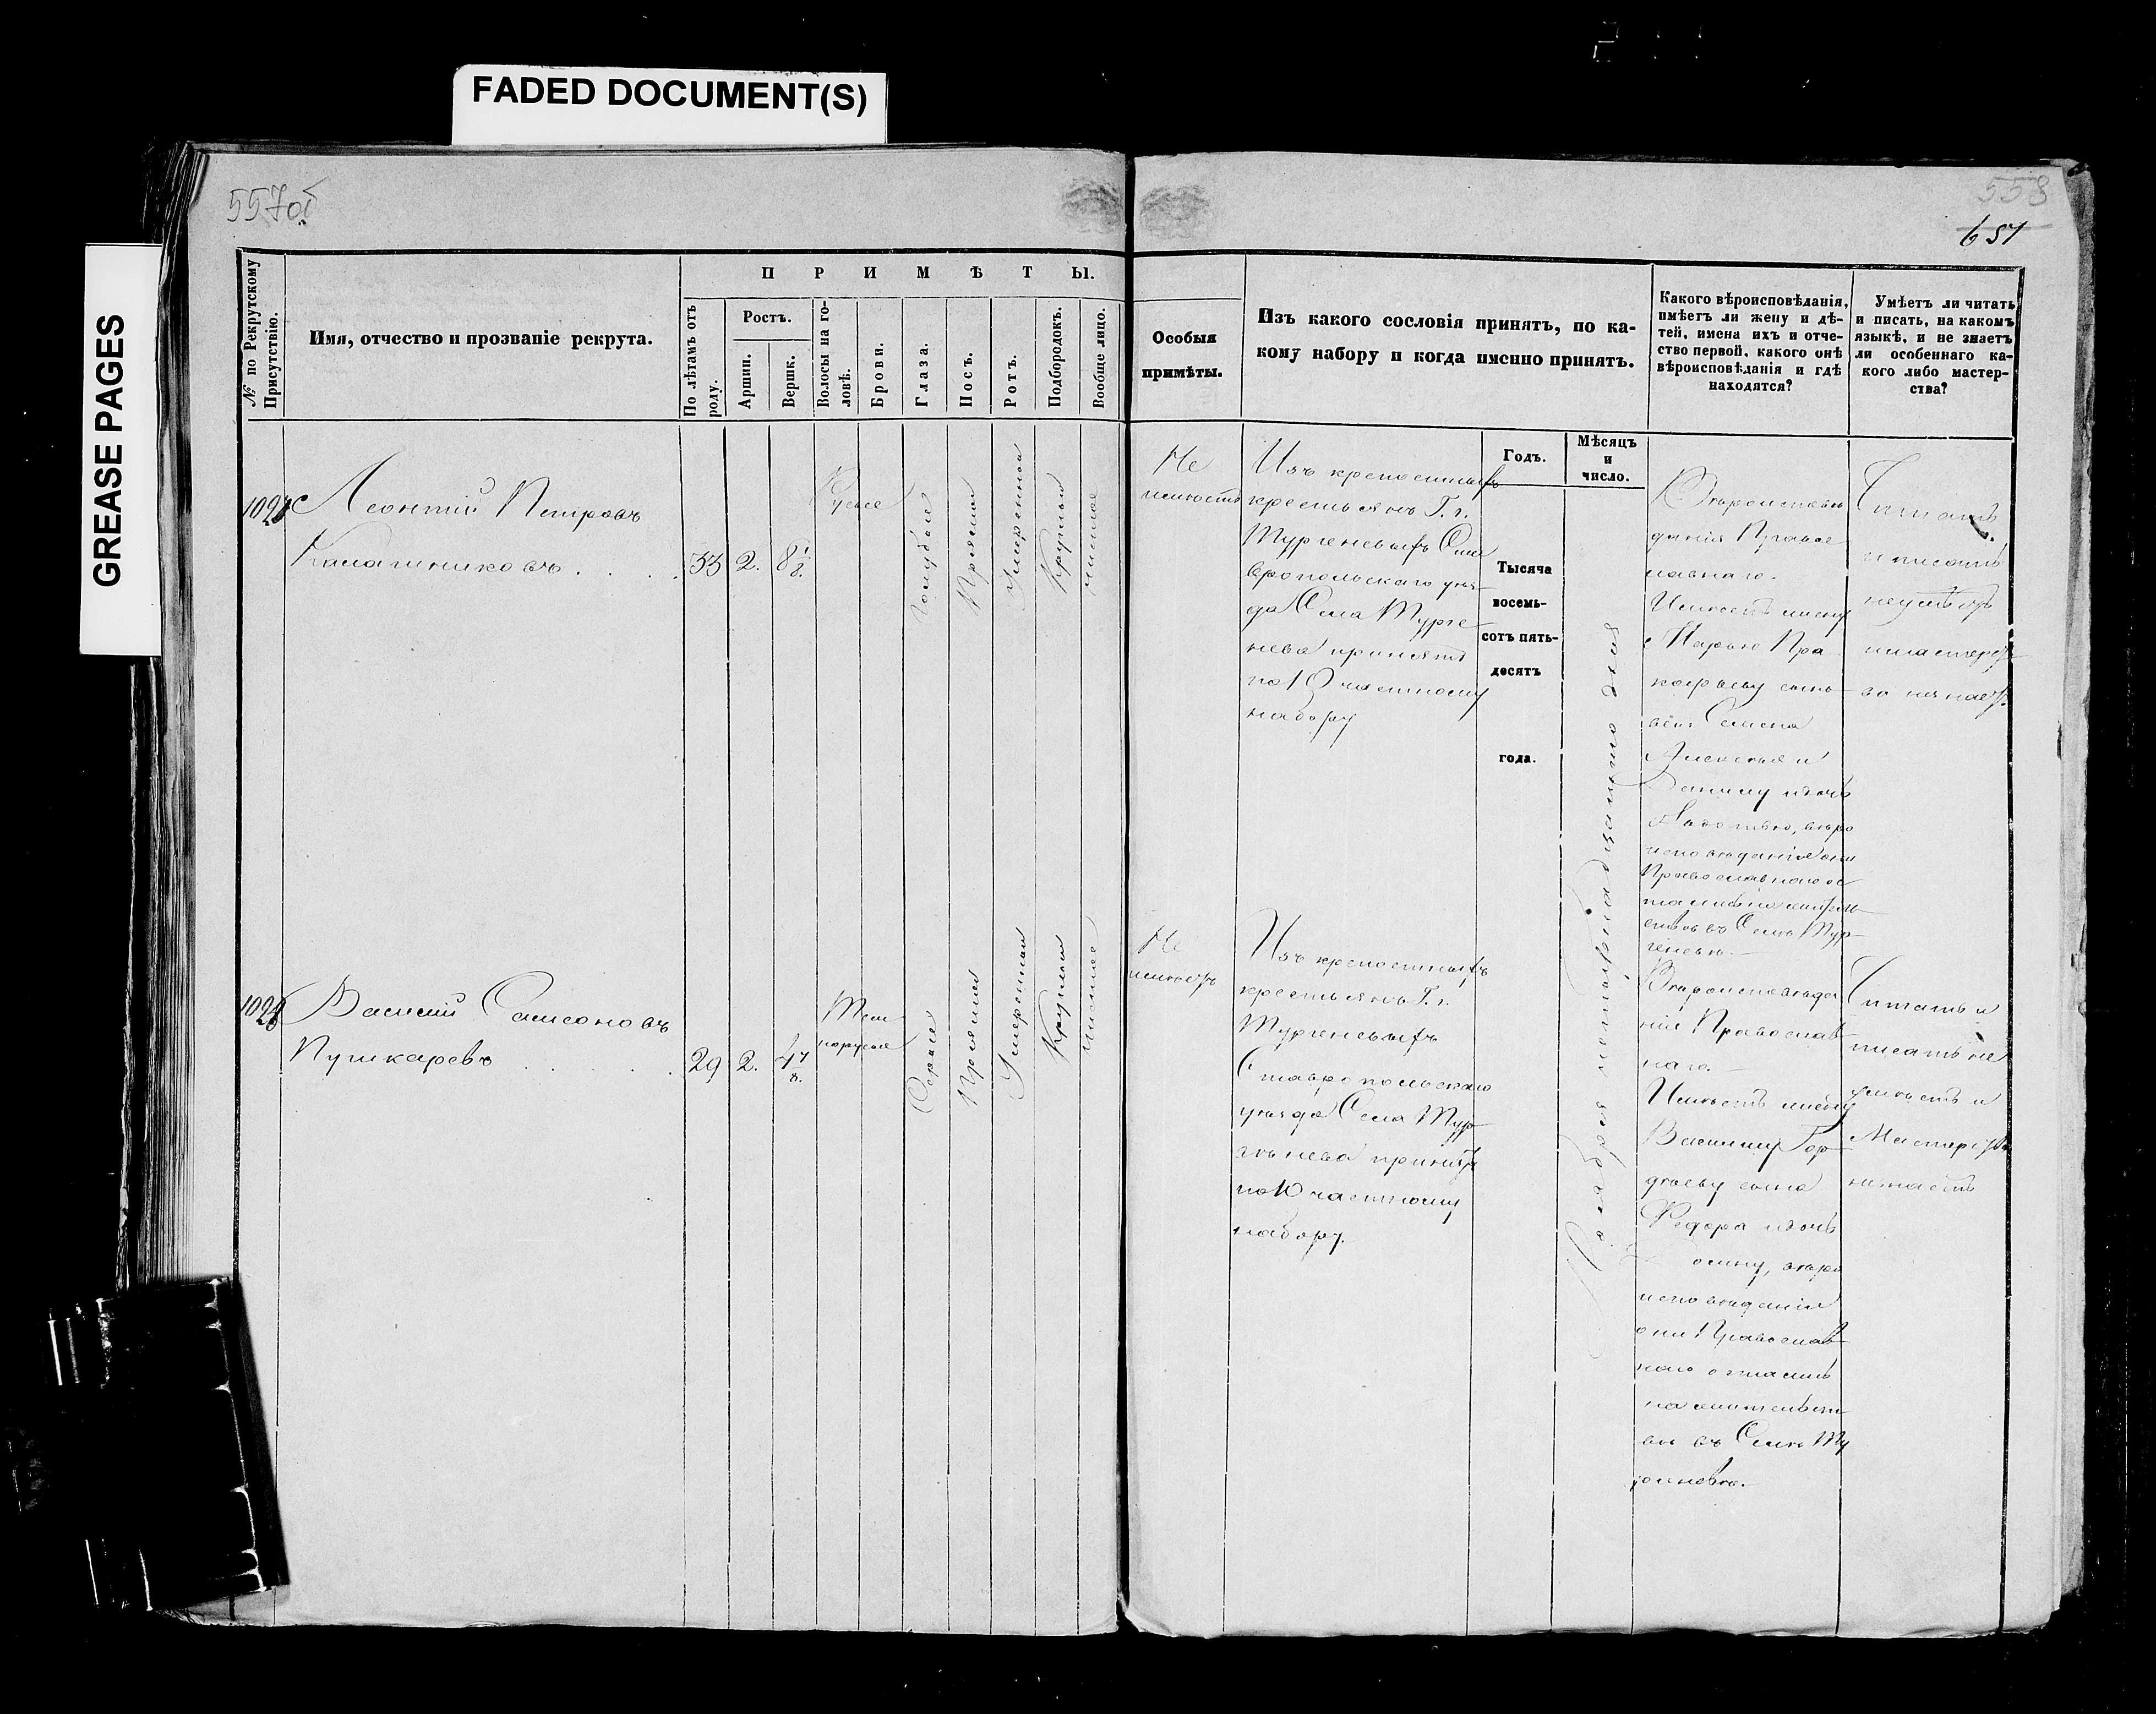 FADED DOCUMENT(S)
GREASE PAGES
557об
558
651
№ по Рекрутскому Присутствію.
Имя, отчество и прозваніе рекрута.
ПРИМѢТЫ.
По лѣтамъ отъ роду.
Ростъ.
Аршин.
Вершк.
Волосы на головѣ.
Брови.
Глаза.
Носъ.
Ротъ.
Подбородокъ.
Вообще лицо.
Особыя
примѣты.
Изъ какого сословія принятъ, по ка-
кому набору и когда именно принятъ.
Какого вѣроисповѣданія,
имѣетъ ли жену и дѣ-
тей, имена ихъ и отче-
ство первой, какого онѣ
вѣроисповѣданія и гдѣ
находятся?
Умѣетъ ли читать
и писать, на какомъ
языкѣ, и не знаетъ
ли особеннаго ка-
кого либо мастер-
ства?
Годъ.
Мѣсяцъ
и
число.
Тысяча
восемь-
сотъ пять-
десятъ
года.
Ноября четырнадцатого дня
Леонтій Петровъ
Калашниковъ
33 2. 8 1/8.
Русые
Голубые
Прямой
Умеренной
Круглый
чистое
Не
имѣетъ
Изъ крепостныхъ
крестьянъ Г. г.
Тургеневыхъ Ста
вропольскаго уез-
да Села Турге
нева принятъ
по 10 частному
набору
Вероисповѣ
данія Право
славнаго.
Имѣетъ жену
Марью Про
кофьеву сыно
вей Семена
Алексѣя и
дочь
веро
исповѣданія они
Православного ос
въ Селе Тур
геневѣ.
Читать
и писать
неумѣетъ
имастерст
ва незнаетъ.
1026
Василий Самсоновъ
Пушкаревъ
29 2. 4 7/8.
Тем
норусые
Серые
Прямой
Умеренный
Круглый
чистое
Не
имѣетъ
Изъ крепостныхъ
крестьянъ Г. г.
Тургеневыхъ
Ставропольскаго
уезда Села Тур
генева принятъ
по 10 частному
набору.
Вероисповѣда
нія Православ
наго.
Имѣетъ жену
Василису Гор
дѣеву сына
Федора и дочь
веро
исповѣданія
они Православ
наго остались
на жительст
вѣ въ Селе Ту
ргеневѣ.
Читать и
писать не
умѣетъ и
Мастерства
незнаетъ